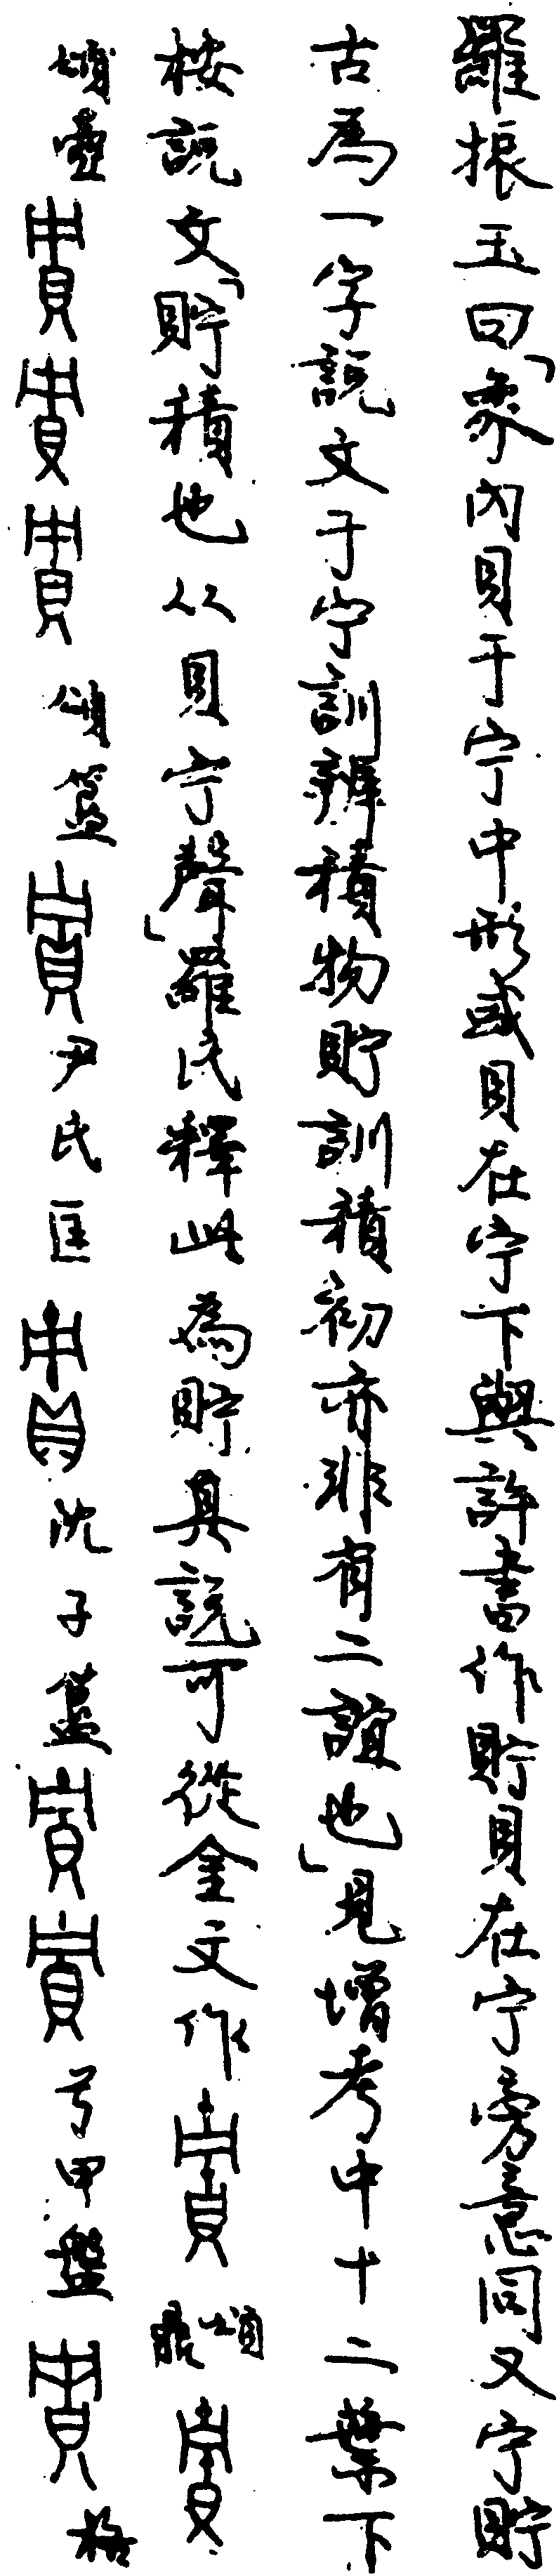 羅振玉曰「象內貝于宁中形或貝在宁下與許書作貯貝在宁旁意同又宁貯
古為一字說文于宁訓辨積物貯訓積初亦非有二誼也」見增考中十二葉下
按說文「貯積也从貝宁聲」羅氏釋此為貯其說可從金文作頌鼎
頌壺頌簋尹氏匡沈子簋兮甲盤格